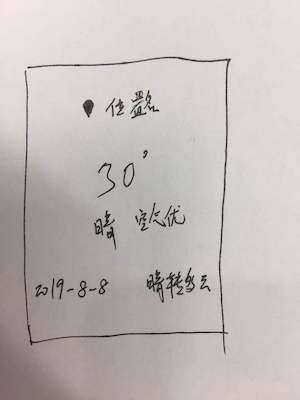 位置名
30°
晴 空气优
2019-8-8 晴转多云